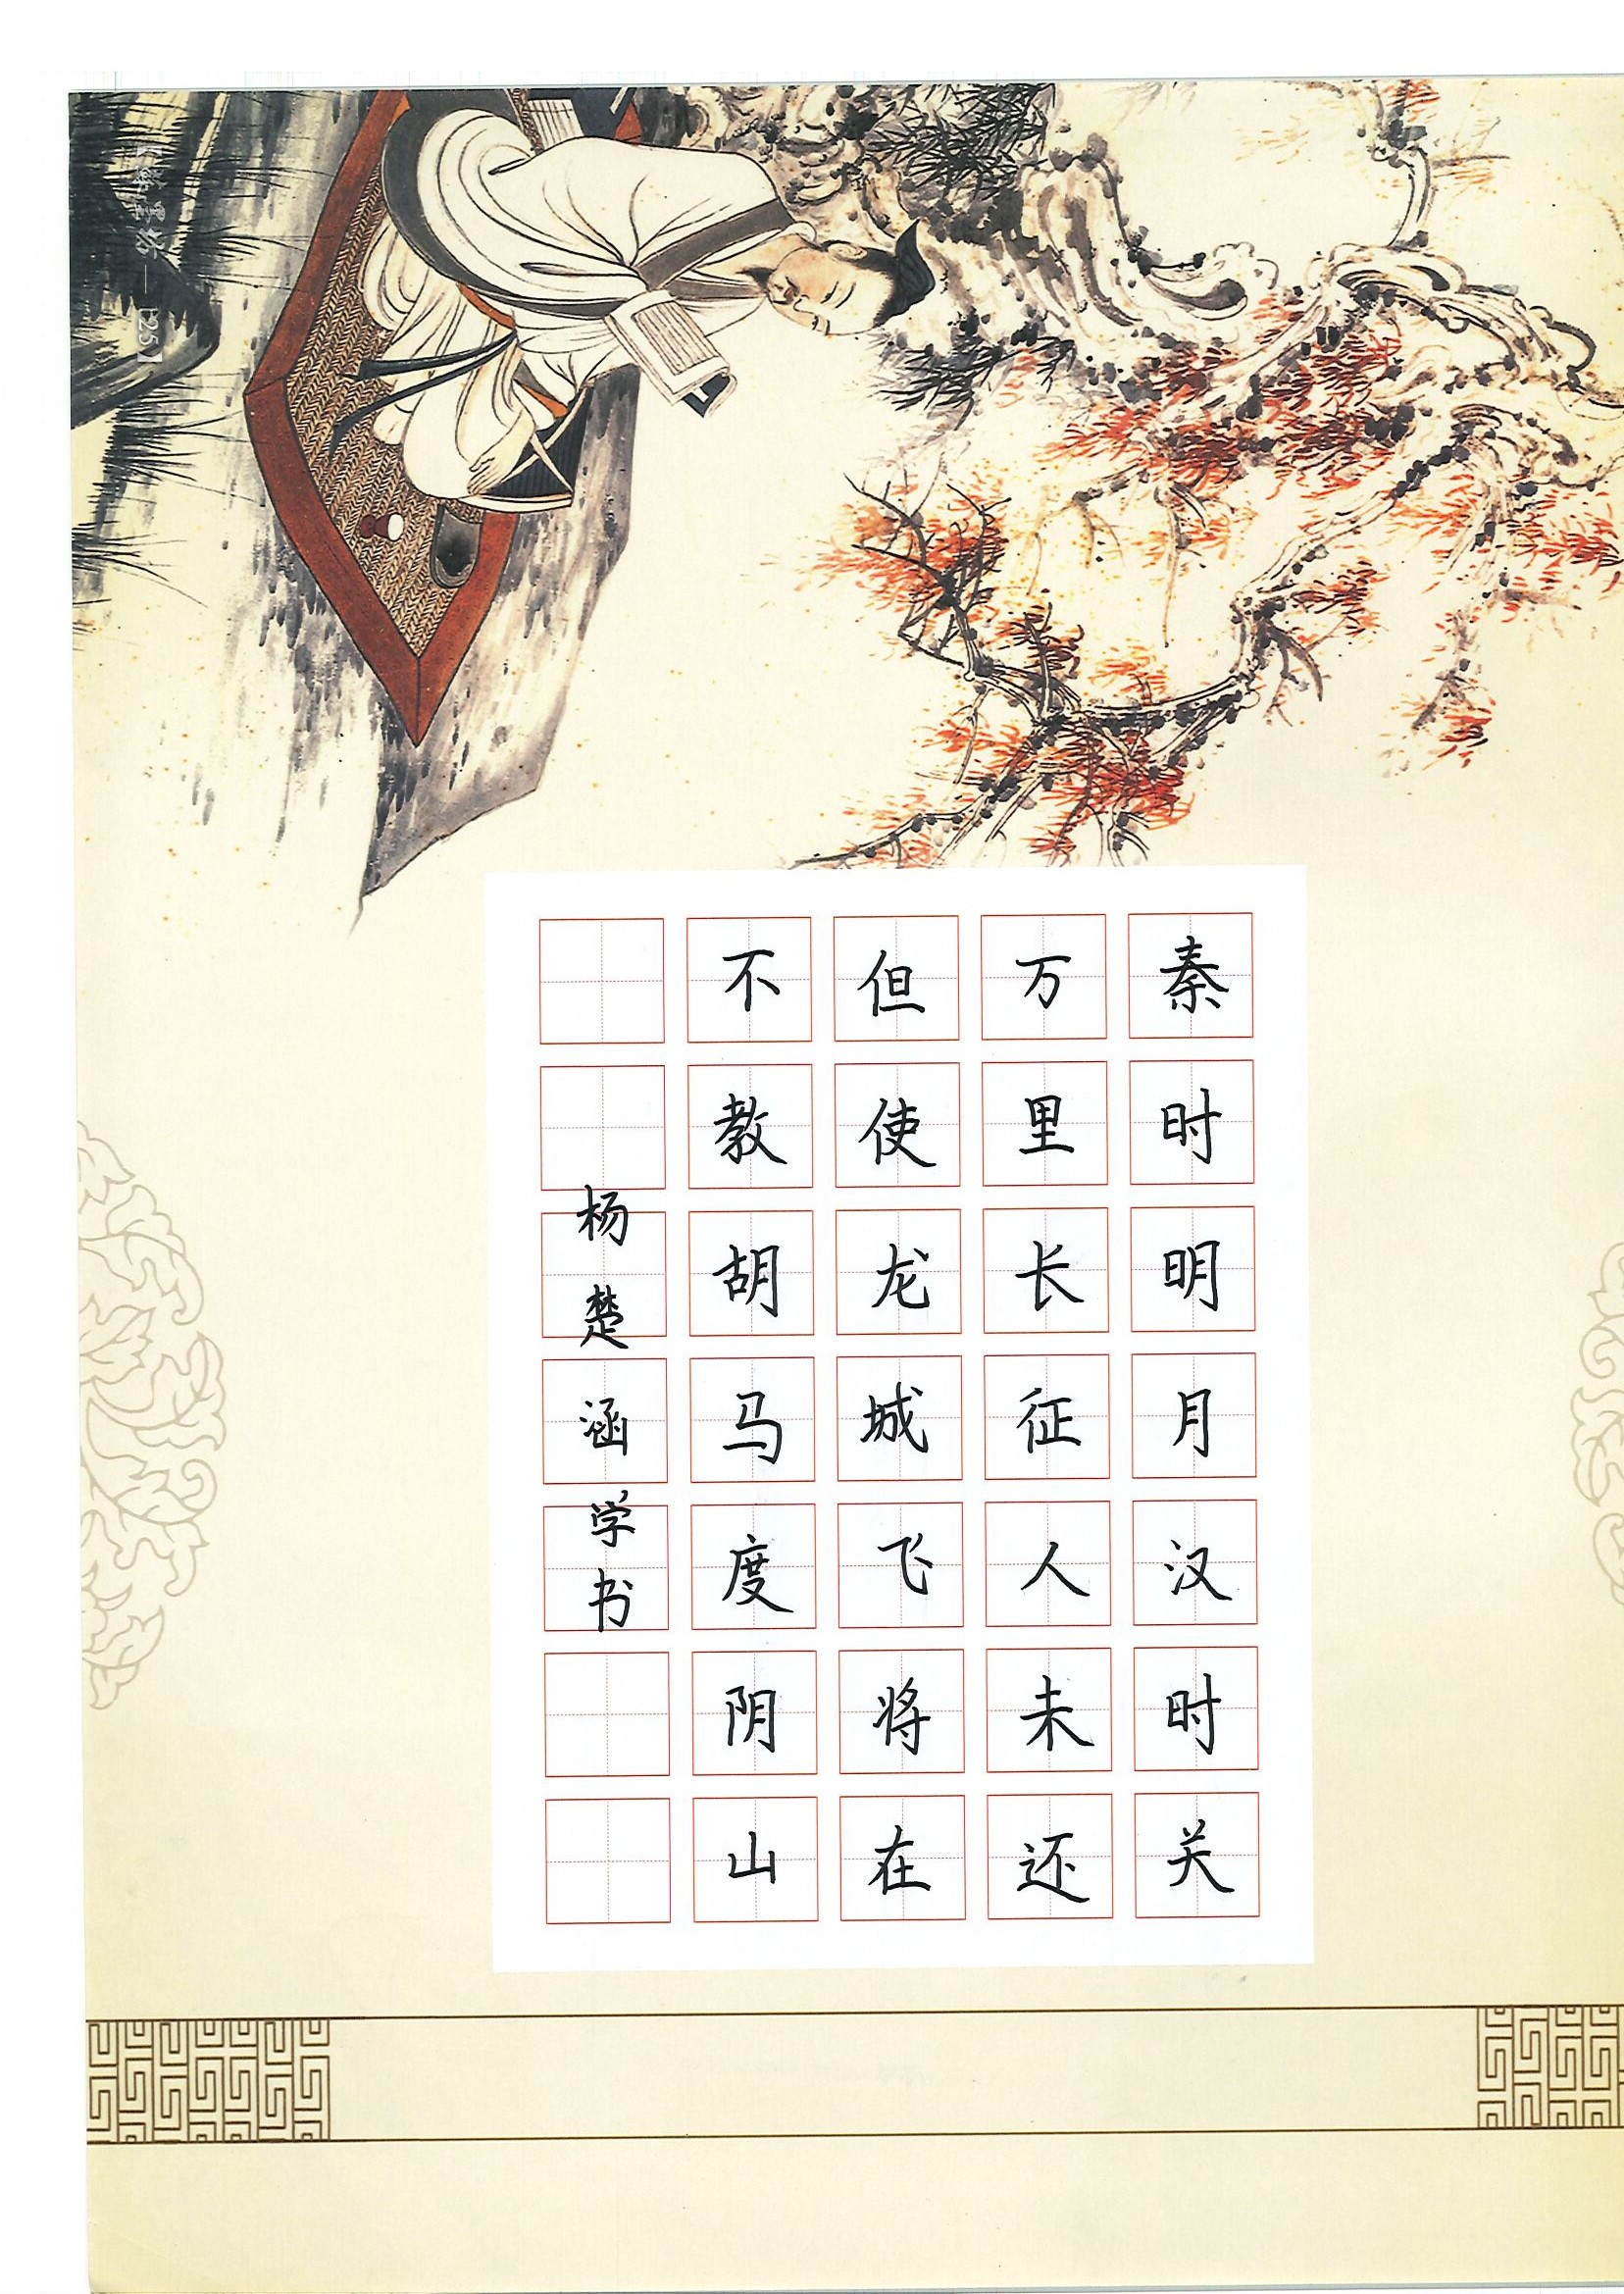 秦时明月汉时关
万里长征人未还
但使龙城飞将在
不教胡马度阴山
杨楚涵学书